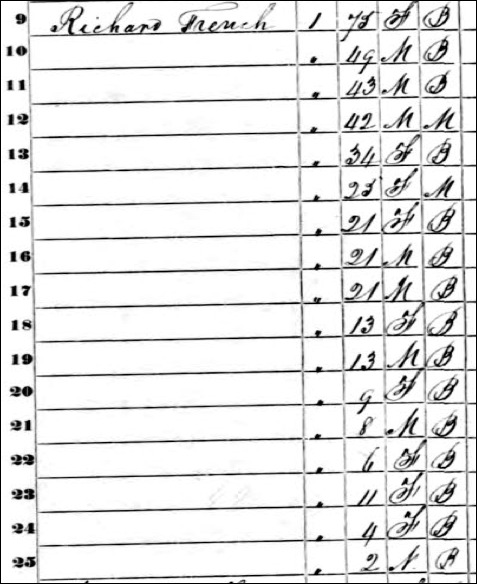 9 Richard French 1 75 F B
10 " 49 M B
11 " 43 M B
12 " 42 M M
13 " 34 F B
14 " 23 F M
15 " 21 F B
16 " 21 M B
17 " 21 M B
18 " 13 F B
19 " 13 M B
20 " 9 F B
21 " 8 M B
22 " 6 F B
23 " 11 F B
24 " 4 F B
25 " 2 B